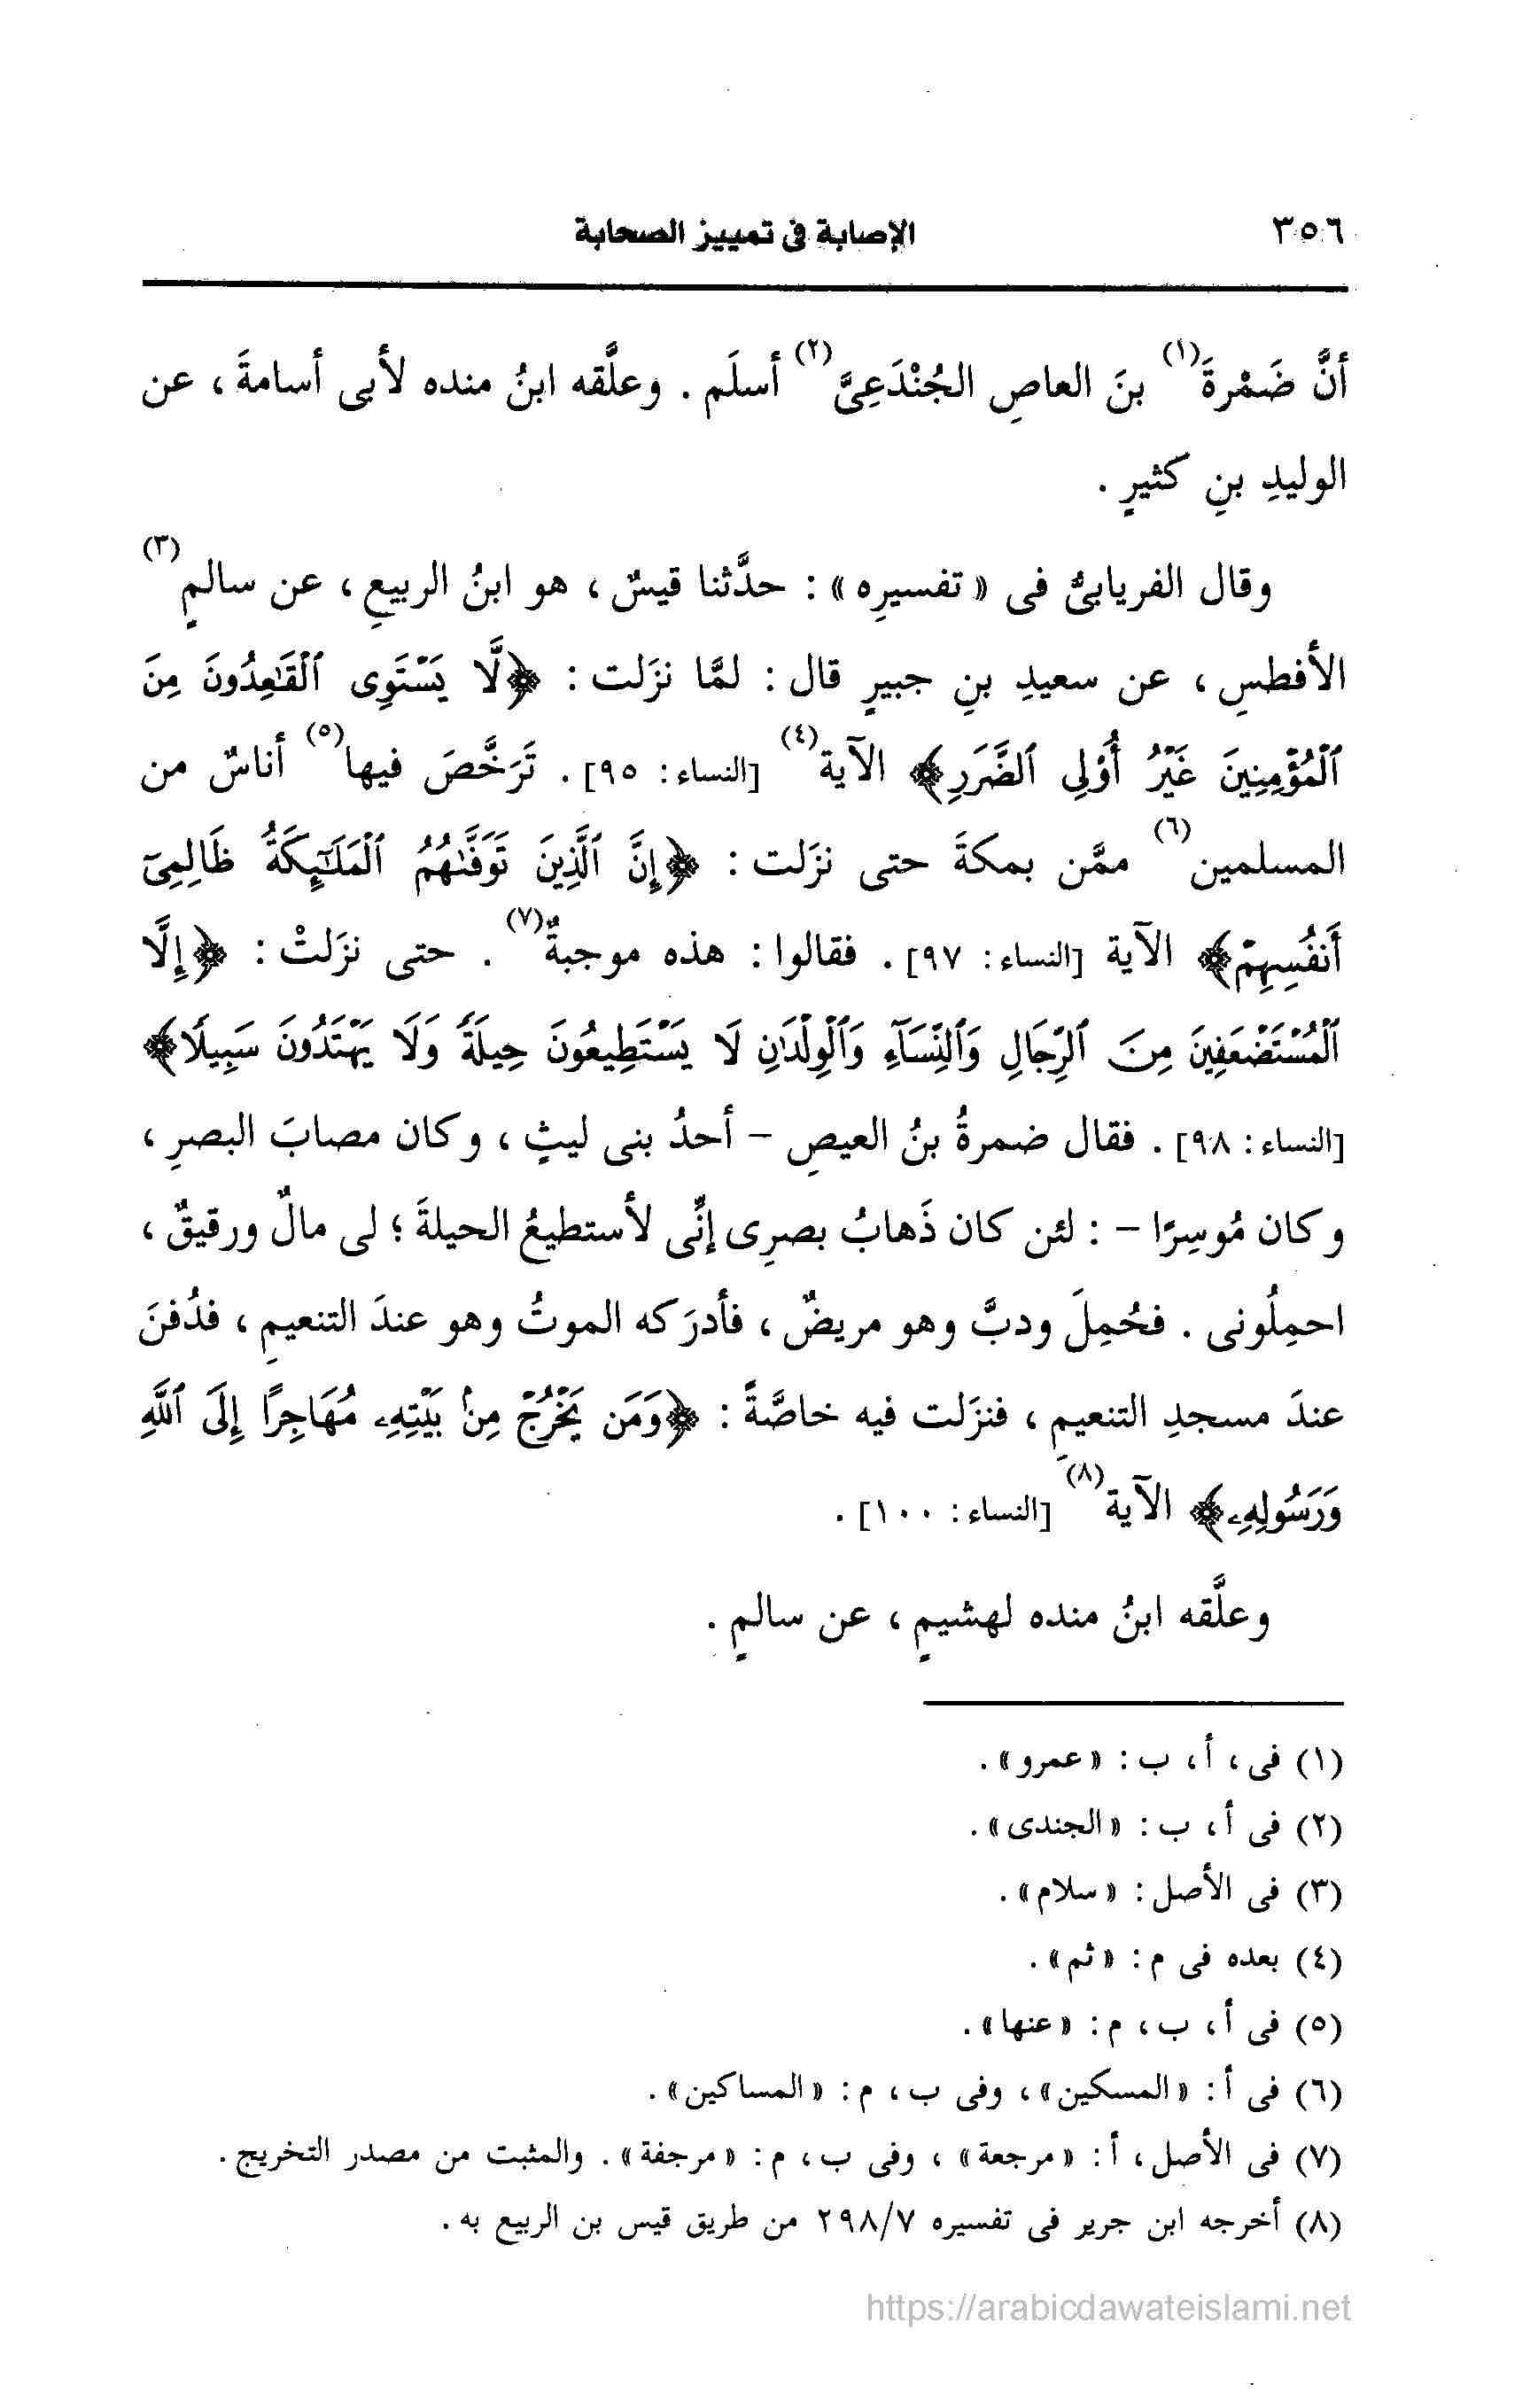 ٣٥٦ الإصابة فى تمييز الصحابة
أنَّ ضَمْرةَ(١) بنَ العاصِ الجُنْدَعِىَّ(٢) أسلَم . وعلَّقه ابنُ منده لأبى أسامةَ ، عن
الوليدِ بنِ كثيرٍ .
وقال الفريابىُّ فى « تفسيرِه » : حدَّثنا قيسٌ ، هو ابنُ الربيعِ ، عن سالمٍ(٣)
الأفطسِ ، عن سعيدِ بنِ جبيرٍ قال : لمَّا نزَلت : ﴿لَّا يَسْتَوِى ٱلْقَٰعِدُونَ مِنَ
ٱلْمُؤْمِنِينَ غَيْرُ أُو۟لِى ٱلضَّرَرِ﴾ الآية(٤) [النساء: ٩٥] . تَرَخَّصَ فيها(٥) أناسٌ من
المسلمين(٦) ممَّن بمكةَ حتى نزَلت : ﴿إِنَّ ٱلَّذِينَ تَوَفَّىٰهُمُ ٱلْمَلَٰٓئِكَةُ ظَالِمِىٓ
أَنفُسِهِمْ﴾ الآية [النساء: ٩٧] . فقالوا : هذه موجبةٌ(٧) . حتى نزَلتْ : ﴿إِلَّا
ٱلْمُسْتَضْعَفِينَ مِنَ ٱلرِّجَالِ وَٱلنِّسَآءِ وَٱلْوِلْدَٰنِ لَا يَسْتَطِيعُونَ حِيلَةً وَلَا يَهْتَدُونَ سَبِيلًا﴾
[النساء: ٩٨] . فقال ضمرةُ بنُ العيصِ – أحدُ بنى ليثٍ ، وكان مصابَ البصرِ ،
وكان مُوسِرًا – : لئن كان ذَهابُ بصرِى إنِّى لأستطيعُ الحيلةَ ؛ لى مالٌ ورقيقٌ ،
احمِلُونى . فحُمِلَ ودبَّ وهو مريضٌ ، فأدرَكه الموتُ وهو عندَ التنعيمِ ، فدُفنَ
عندَ مسجدِ التنعيمِ ، فنزَلت فيه خاصَّةً : ﴿وَمَن يَخْرُجْ مِنۢ بَيْتِهِۦ مُهَاجِرًا إِلَى ٱللَّهِ
وَرَسُولِهِۦ﴾ الآية(٨) [النساء: ١٠٠] .
وعلَّقه ابنُ منده لهشيمٍ ، عن سالمٍ .
(١) فى ، أ ، ب : «عمرو» .
(٢) فى أ ، ب : «الجندى» .
(٣) فى الأصل : «سلام» .
(٤) بعده فى م : «ثم» .
(٥) فى أ ، ب ، م : «عنها» .
(٦) فى أ : «المسكين» ، وفى ب ، م : «المساكين» .
(٧) فى الأصل ، أ : «مرجعة» ، وفى ب ، م : «مرجفة» . والمثبت من مصدر التخريج .
(٨) أخرجه ابن جرير فى تفسيره ٢٩٨/٧ من طريق قيس بن الربيع به .
https://arabicdawateislami.net